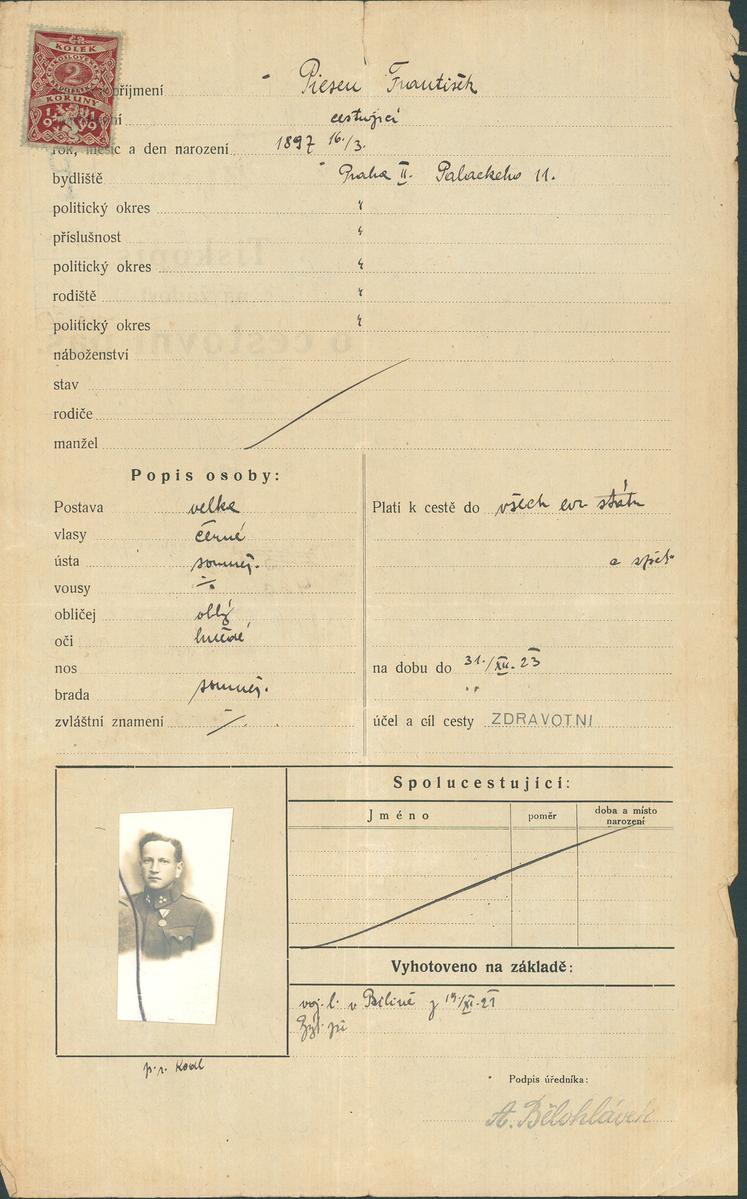 KOLEK
2
KORUNY
1919
příjmení Piesen František
cestující
rok, měsíc a den narození 1897 16./3.
bydliště Praha II. Palackeho 11.
politický okres "
příslušnost "
politický okres "
rodiště "
politický okres "
náboženství
stav
rodiče
manžel
Popis osoby:
Postava velka
vlasy černé
ústa souměr.
vousy
obličej oblý
oči hnědé
nos
brada souměr.
zvláštní znamení
Platí k cestě do všech evr. států
a zpět
na dobu do 31./XII. 23
účel a cíl cesty ZDRAVOTNI
Spolucestující:
Jméno poměr doba a místo narození
Vyhotoveno na základě:
voj. l. v Bílině z 19/XI. 21
Podpis úředníka:
A. Bělohlávek